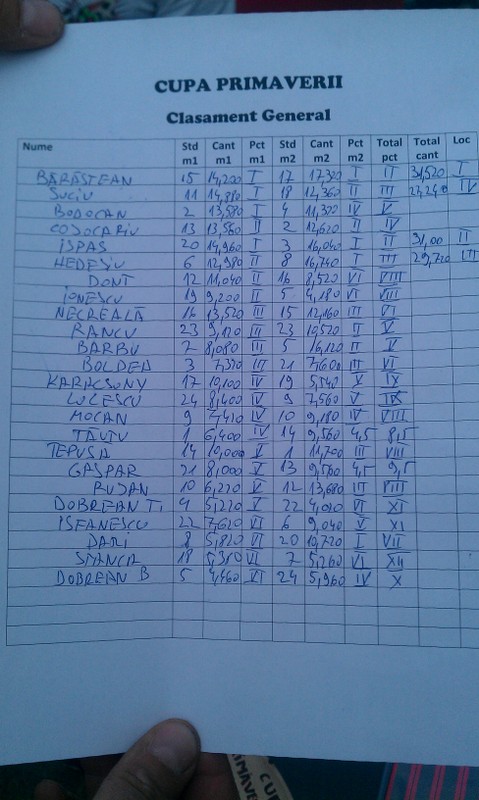 CUPA PRIMAVERII
Clasament General
Nume Std m1 Cant m1 Pct m1 Std m2 Cant m2 Pct m2 Total pct Total cant Loc
BĂRĂSTEAN 15 14,200 I 17 17,320 I II 31,520 I
SUCIU 11 14,880 I 18 12,360 II III 27,240 IV
BODOCAN 2 13,580 I 4 11,370 IV V
COJOCARIU 13 13,560 II 2 12,620 II IV
ISPAS 20 14,960 I 3 16,040 I II 31,00 II
HEDEȘIU 6 12,980 II 8 16,740 I III 29,720 III
DONT 12 11,040 II 16 8,520 VI VIII
IONESCU 19 9,200 II 5 4,180 VI VIII
NECREALĂ 16 13,520 III 15 12,160 III VI
RANCU 23 9,120 III 23 10,520 II V
BARBU 7 8,080 III 5 16,120 II V
BOLDEA 3 7,370 III 21 7,600 III VI
KARACSONY 17 10,100 IV 19 5,540 V IX
LUCESCU 24 8,400 IV 9 7,560 V IX
MOCAN 9 7,410 IV 10 9,180 IV VIII
TĂUTU 1 6,400 IV 14 9,560 4,5 8,5
TEPUSA 14 10,000 V 1 11,700 III VIII
GASPAR 21 8,000 V 13 9,560 4,5 9,5
RUJAN 10 6,220 V 12 13,680 III VIII
DOBREAN T. 4 5,220 V 22 4,020 VI XI
ISFANESCU 22 7,620 VI 6 9,040 V XI
DARI 8 5,820 VI 20 10,720 I VII
SMANCA 18 5,380 VI 7 5,260 VI XII
DOBREAN B 5 4,460 VI 24 5,960 IV X
CUP
PRIMAVE